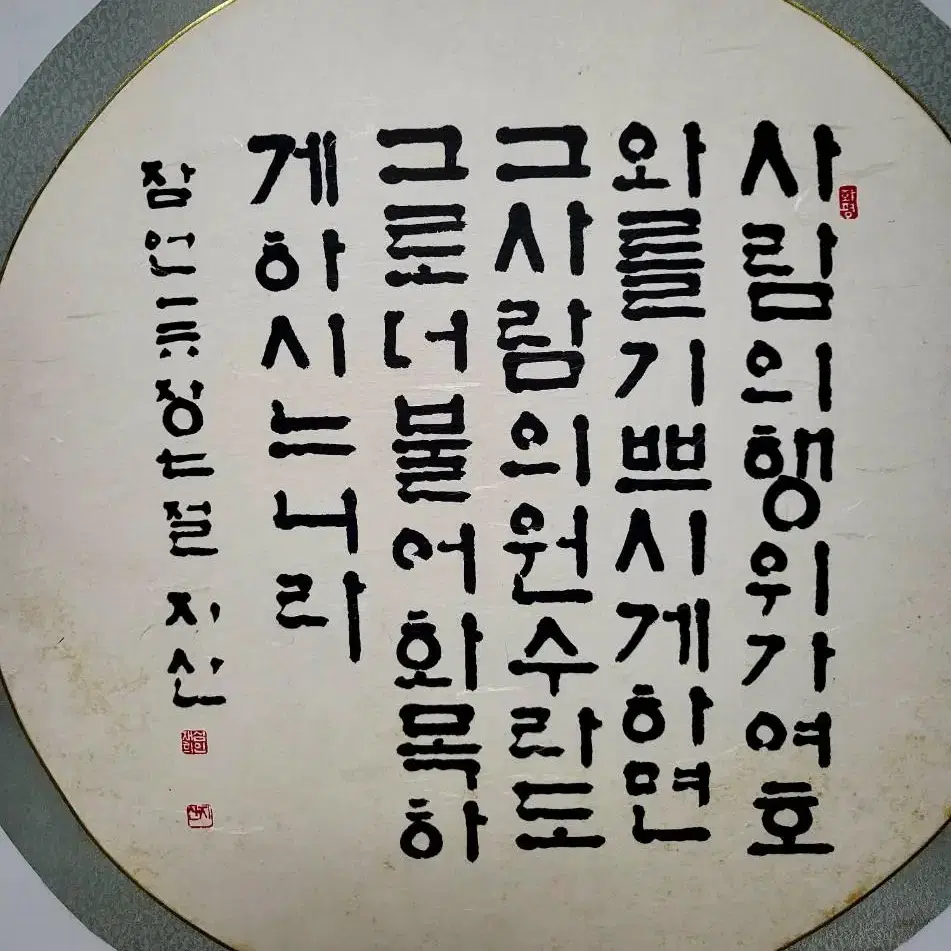 사람의행위가여호
와를기쁘시게하면
그사람의원수라도
그로더불어화목하
게하시는니라
잠언一六장七절 지산
화평